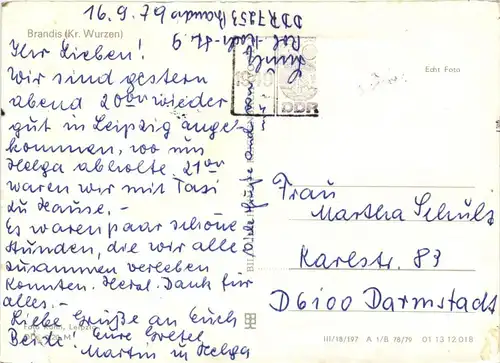 Brandis (Kr. Wurzen)
16.9.79
Ihr Lieben!
Wir sind gestern
abend 20 Uhr wieder
gut in Leipzig ange-
kommen, wo uns
Helga abholte. 21 Uhr
waren wir mit Taxi
zu Hause. -
Es waren paar schöne
Stunden, die wir alle
zusammen verleben
konnten. Herzl. Dank für
alles. -
Liebe Grüße an Euch
Beide! Eure Gretel
Martin u Helga
Viele Grüße
DDR 7253
DDR
Echt Foto
Frau
Martha Schulz
Karlstr. 83
D6100 Darmstadt
III/18/197 A 1/B 78/79 01 13 12 018